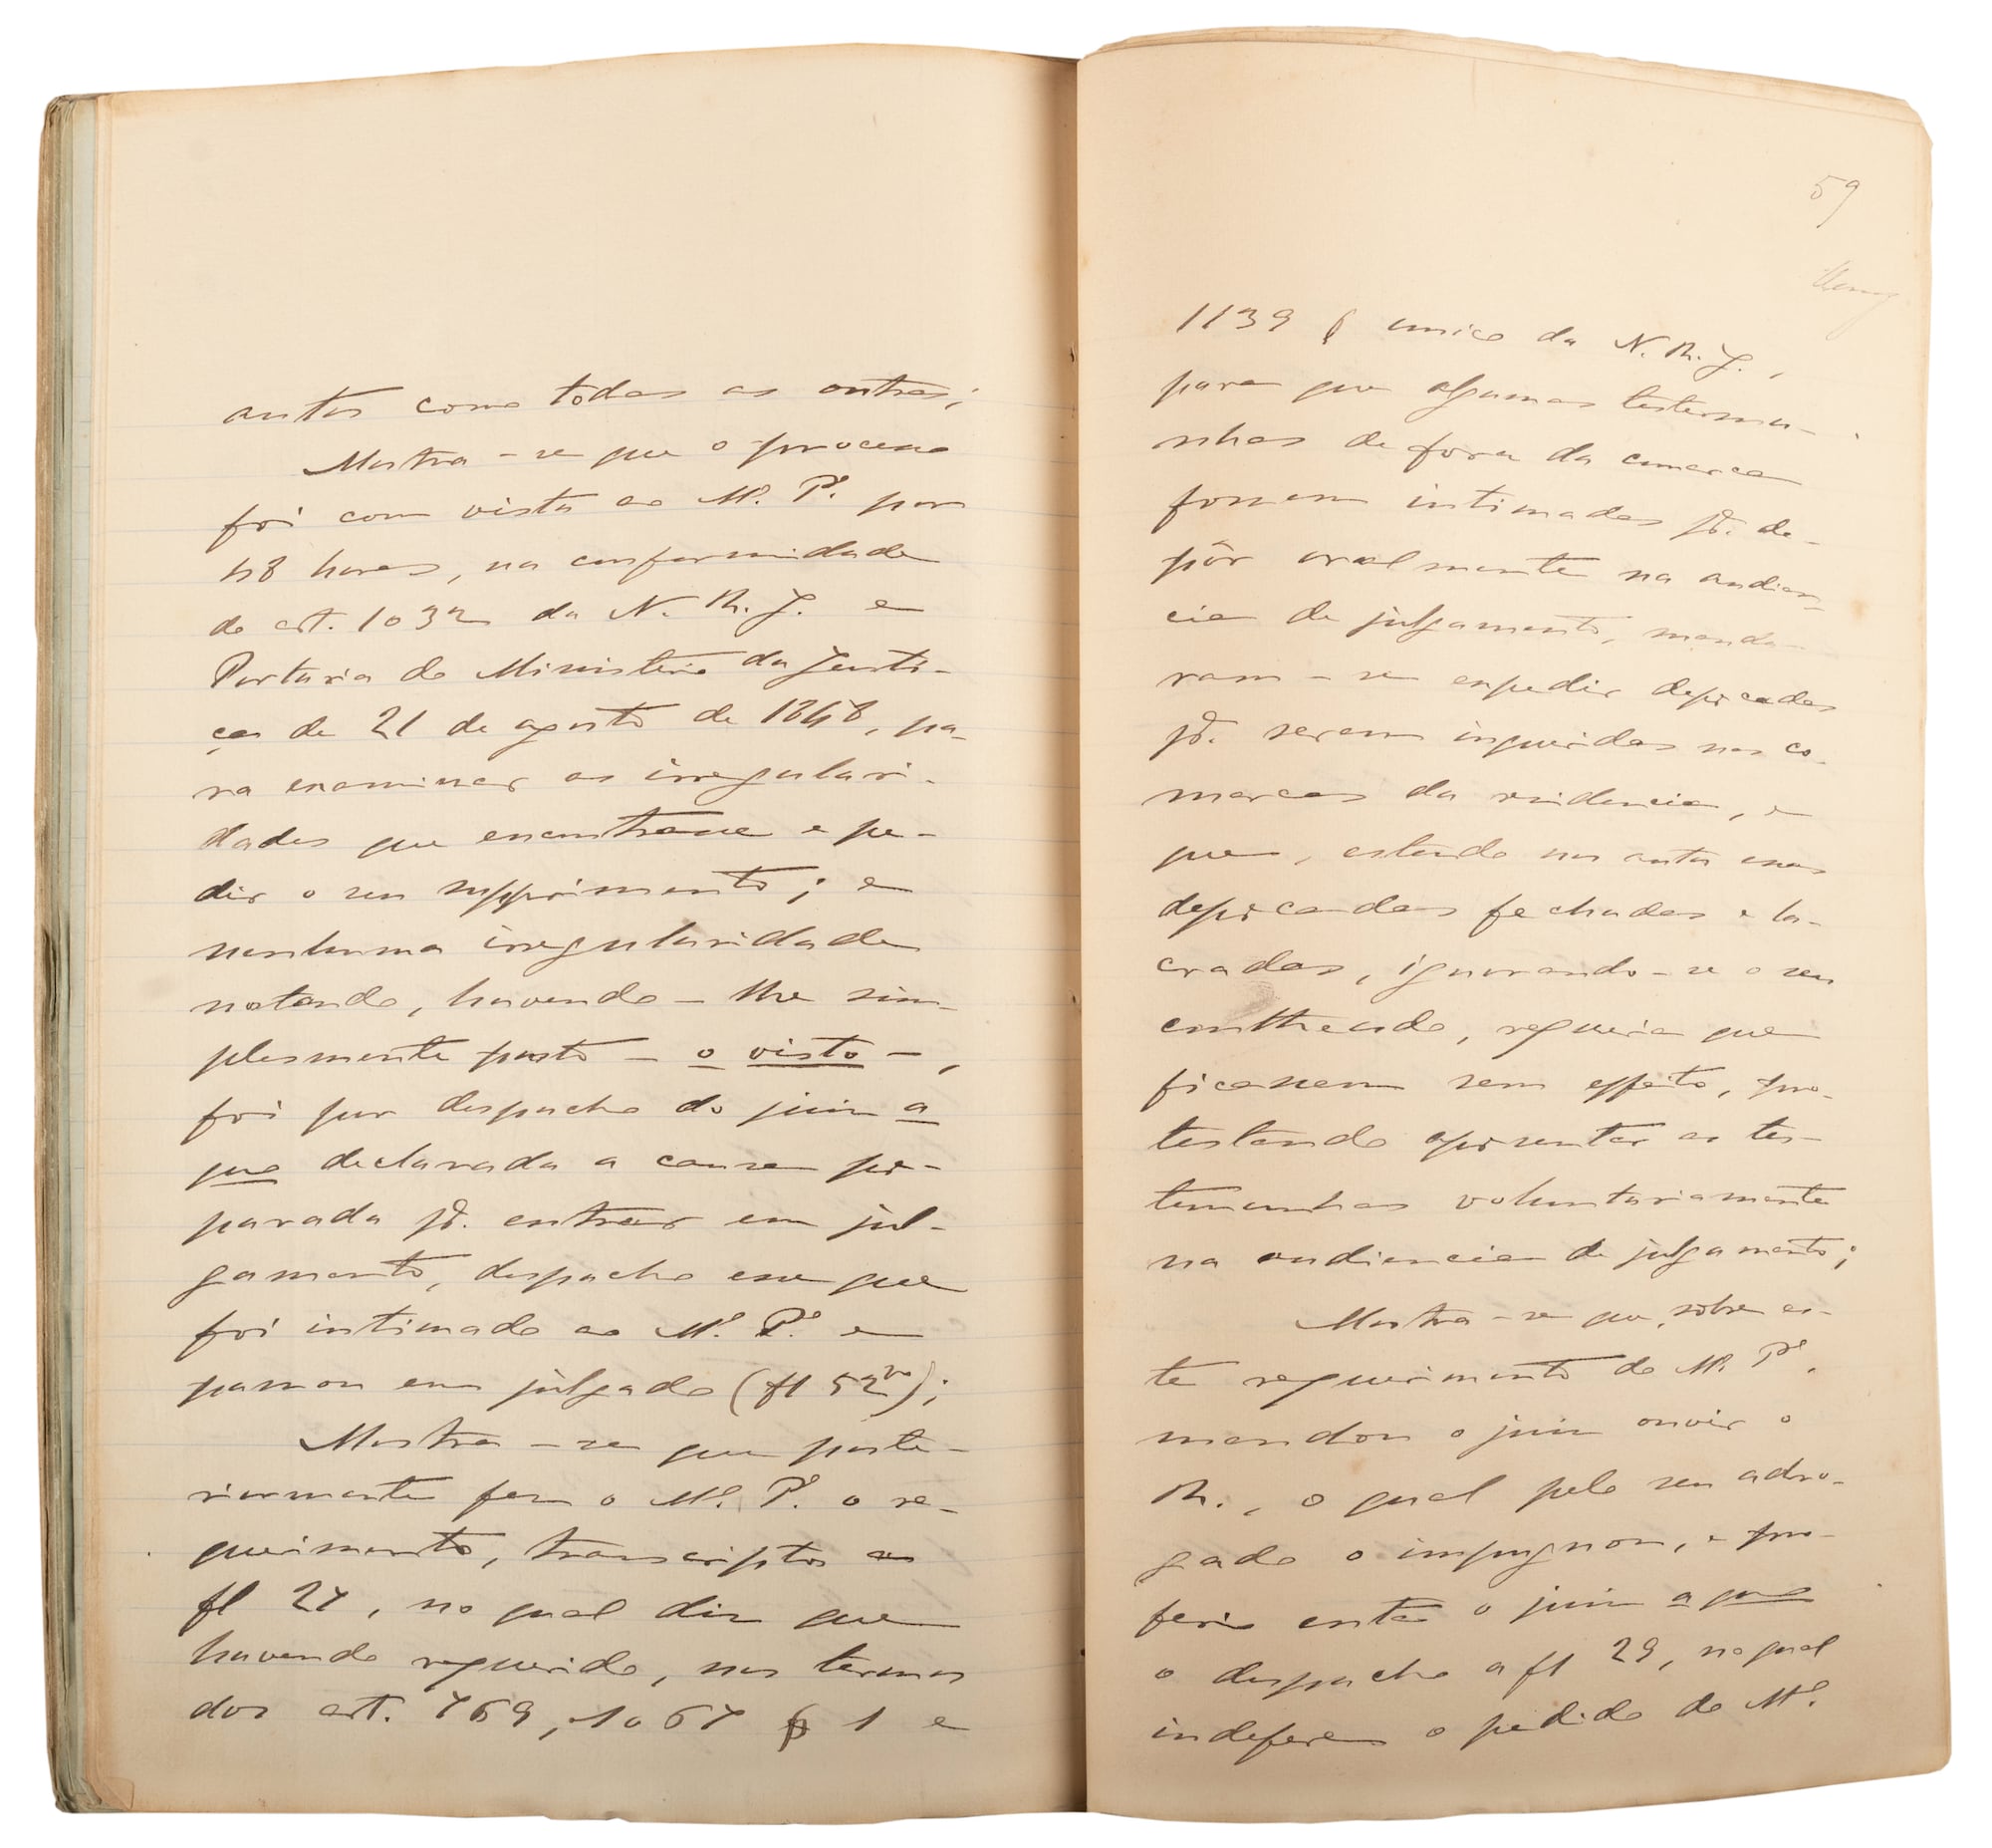 autos como todas as outras;
Mostra-se que o processo
foi com vista ao M.º P.º por
48 horas, na conformidade
do art. 1032 da N. R. J. e
Portaria do Ministerio da Justi-
ça de 21 de agosto de 1848, pa-
ra examinar as irregulari-
dades que encontrasse e pe-
dir o seu supprimento; e
nenhuma irregularidade
notando, havendo-lhe sim-
plesmente posto - o visto -,
foi por despacho do juiz a
quo declarada a causa pre-
parada pª. entrar em jul-
gamento, despacho esse que
foi intimado ao M.º P.º e
passou em julgado (fl 52vo);
Mostra-se que poste-
riormente fez o M.º P.º o re-
querimento, transcripto a
fl 27, no qual diz que
havendo requerido, nos termos
dos art. 769, 1067 § 1 e
59
1139 § unico da N. R. J.,
para que algumas testemu-
nhas de fora da comarca
fossem intimadas pª. de-
pôr oralmente na audien-
cia de julgamento, manda-
ram-se expedir deprecadas
pª. serem inqueridas nas co-
marcas da residencia, e
que, estando nos autos essas
deprecadas fechadas e la-
cradas, ignorando-se o seu
contheudo, requeria que
ficassem sem effeito, pro-
testando apresentar as tes-
temunhas voluntariamente
na audiencia de julgamento;
Mostra-se que, sobre es-
te requerimento do M.º P.º,
mandou o juiz ouvir o
R., o qual pelo seu advo-
gado o impugnou, e pro-
feriu então o juiz a quo
o despacho a fl 29, no qual
indefere o pedido do M.º